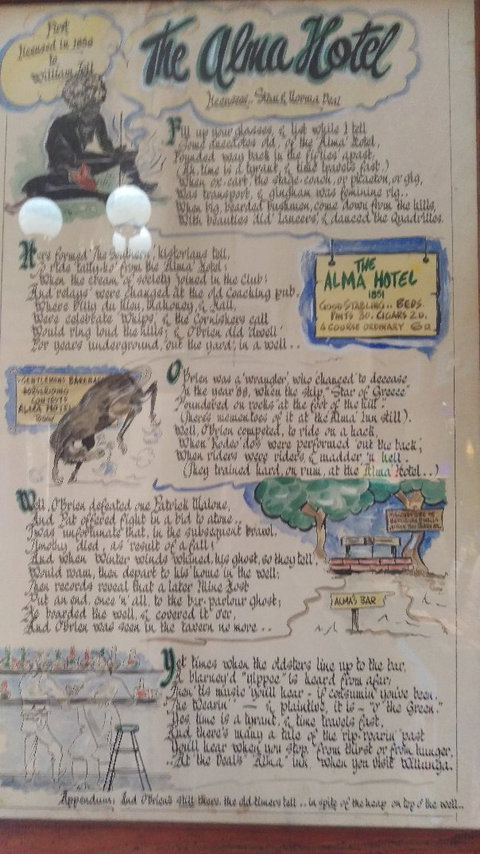 First
licensed in 1856
to
William
The Alma Hotel
Licensees.. Stan & Norma Deal
Fill up your glasses, & list while I tell
Some anecdotes old, of the 'Alma' Hotel,
Founded way back in the fifties apast,
(Ah, time is a tyrant, & time travels fast.)
When ox-cart, the stage-coach, or phaeton, or gig,
Was transport, & gingham was feminine rig..
When big, bearded bushmen, come down from the hills,
With beauties did 'Lancers', & danced the Quadrilles.
Here formed 'The Southern', historians tell,
To ride 'tally-ho' from the 'Alma' Hotel;
When the cream of society joined in the club:
And relays were changed at the old Coaching pub.
Where Billy du Mahoney, & Hall,
Were celebrate 'Whips', & the Cornishers call
Would ring loud the hills; & O'Brien did 'dwell'
For years underground, 'out the yard', in a well..
THE
ALMA HOTEL
1851
GOOD STABLING.. BEDS.
PINTS 3D. CIGARS 2D.
4 COURSE ORDINARY 6D.
GENTLEMENS
CONTESTS
ALMA HOTEL
TODAY
O'Brien was a 'wrangler', who changed to decease
In the year '88, when the ship, "Star of Greece"
Foundered on rocks at the foot of the hill:
(Here's mementoes of it at the Alma Inn still).
Well, O'Brien competed, to ride on a hack,
When 'Rodeo do's' were performed 'out the back',
When riders were riders, & madder 'n hell.
(They trained hard, on rum, at the 'Alma' Hotel..)
Well, O'Brien defeated one Patrick Malone,
And Pat offered fight in a bid to atone..
'Twas unfortunate that, in the subsequent brawl,
Timothy died, as result of a fall;
And when Winter winds whined, his ghost, so they tell,
Would roam, then depart to his home in the well;
Then records reveal that a later Mine Host
Put an end, once 'n' all, to the bar-parlour ghost;
He bearded the well, & covered it o'er,
And O'Brien was seen in the tavern no more..
ALMA'S BAR
Yet times when the oldsters line up to the bar,
A blarney'd "yippee" is heard from afar;
Then it's music you'll hear - if consumin' you've been.
"The Wearin'" — & plaintive, it is — "o' the Green."
Yes time is a tyrant, & time travels fast,
And there's many a tale of the rip-roarin' past
You'll hear when you stop, from thirst or from hunger,
..At the Deal's "Alma" inn when you visit Willunga.
Appendum: And O'Brien's still there, the old timers tell.. in spite of the heap on top o' the well..